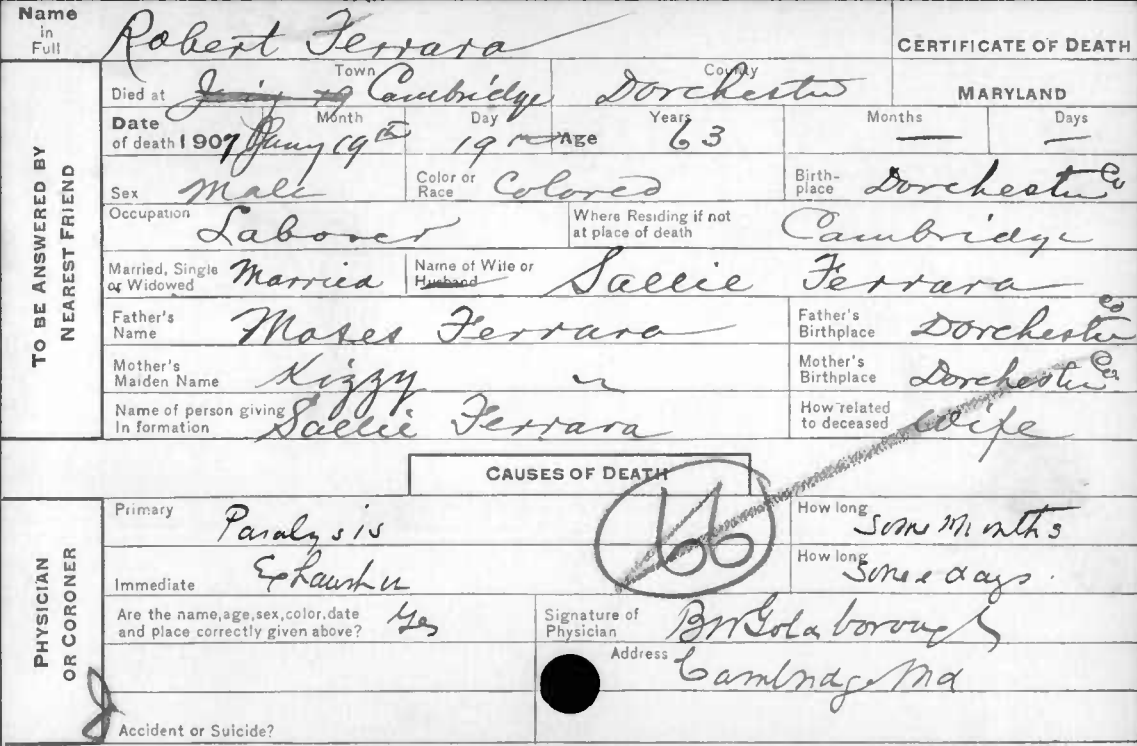 Name in Full Robert Ferrara CERTIFICATE OF DEATH
TO BE ANSWERED BY NEAREST FRIEND
Died at Town Cambridge County Dorchester MARYLAND
Date of death 1907 Month Jany 19th Day 19 Age Years 63 Months — Days —
Sex Male Color or Race Colored Birth-place Dorchester Co
Occupation Laborer Where Residing if not at place of death Cambridge
Married, Single or Widowed Married Name of Wife or Husband Sallie Ferrara
Father's Name Moses Ferrara Father's Birthplace Dorchester Co
Mother's Maiden Name Kizzy Mother's Birthplace Dorchester Co
Name of person giving In formation Sallie Ferrara How related to deceased Wife
CAUSES OF DEATH
66
PHYSICIAN OR CORONER
Primary Paralysis How long some Months
Immediate Exhaustion How long Some days.
Are the name,age,sex,color,date and place correctly given above? Yes Signature of Physician BW Goldsborough
Address Cambridge Md
Accident or Suicide?